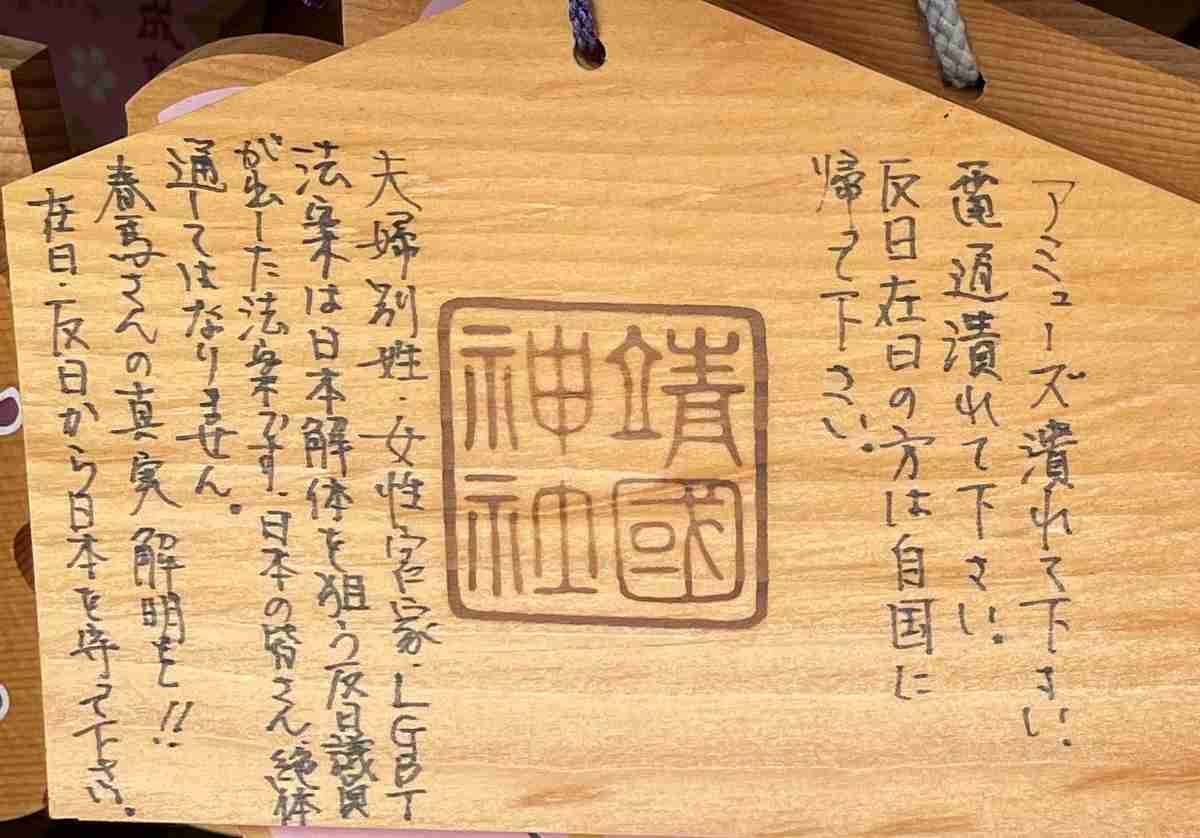 アミューズ潰れて下さい.
電通潰れて下さい.
反日在日の方は自国に
帰って下さい.
靖國
神社
夫婦別姓・女性宮家・LGBT
法案は日本解体を狙う反日議員
が出した法案です.日本の皆さん絶体
通してはなりません。
春馬さんの真実解明を!!
在日・反日から日本を守って下さい.